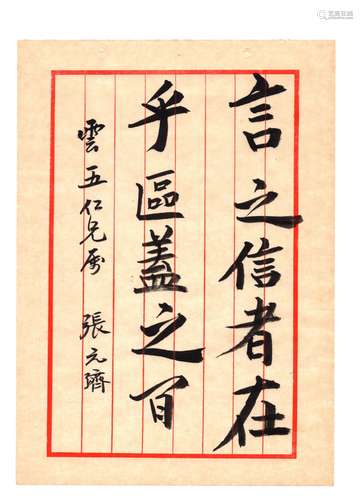 言之信者在
乎區蓋之間
雲五仁兄屬 張元濟